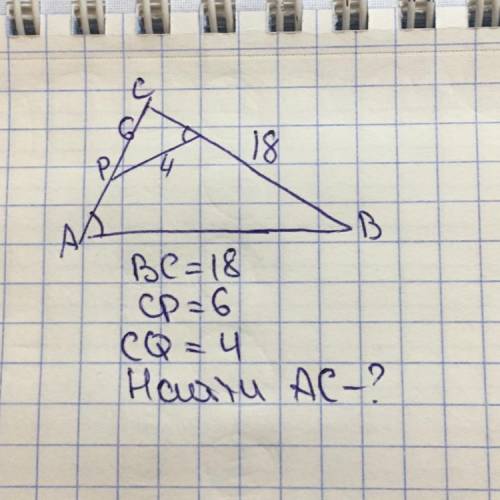 C
6
18
P
4
A
B
BC = 18
CP = 6
CQ = 4
Найти AC - ?